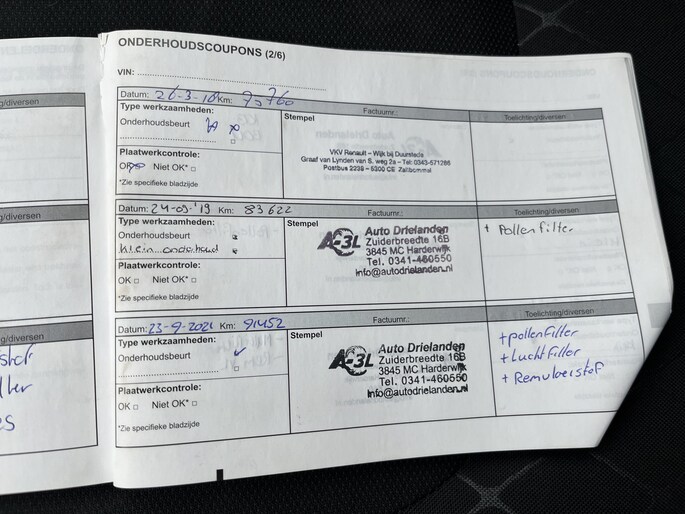 ONDERHOUDSCOUPONS (2/6)
VIN:
g/diversen
Datum: 26-3-18 Km: 75760
Factuurnr.:
Toelichting/diversen
Type werkzaamheden:
Stempel
Onderhoudsbeurt
VKV Renault - Wijk bij Duurstede
Graaf van Lynden van S. weg 2a - Tel: 0343-571286
Postbus 2235 - 5300 CE Zaltbommel
Plaatwerkcontrole:
OK Niet OK*
*Zie specifieke bladzijde
g/diversen
Datum: 24-09-'19 Km: 83622
Factuurnr.:
Toelichting/diversen
Type werkzaamheden:
Stempel
Onderhoudsbeurt
klein onderhoud
A-3L
Auto Drielanden
Zuiderbreedte 16B
3845 MC Harderwijk
Tel. 0341-460550
info@autodrielanden.nl
+ Pollenfilter
Plaatwerkcontrole:
OK Niet OK*
*Zie specifieke bladzijde
/diversen
Datum: 23-9-2021 Km: 91452
Factuurnr.:
Toelichting/diversen
Type werkzaamheden:
Stempel
Onderhoudsbeurt ✓
A-3L
Auto Drielanden
Zuiderbreedte 16B
3845 MC Harderwijk
Tel. 0341-460550
info@autodrielanden.nl
+ pollenfilter
+ Luchtfilter
+ Remvloeistof
Plaatwerkcontrole:
OK Niet OK*
*Zie specifieke bladzijde